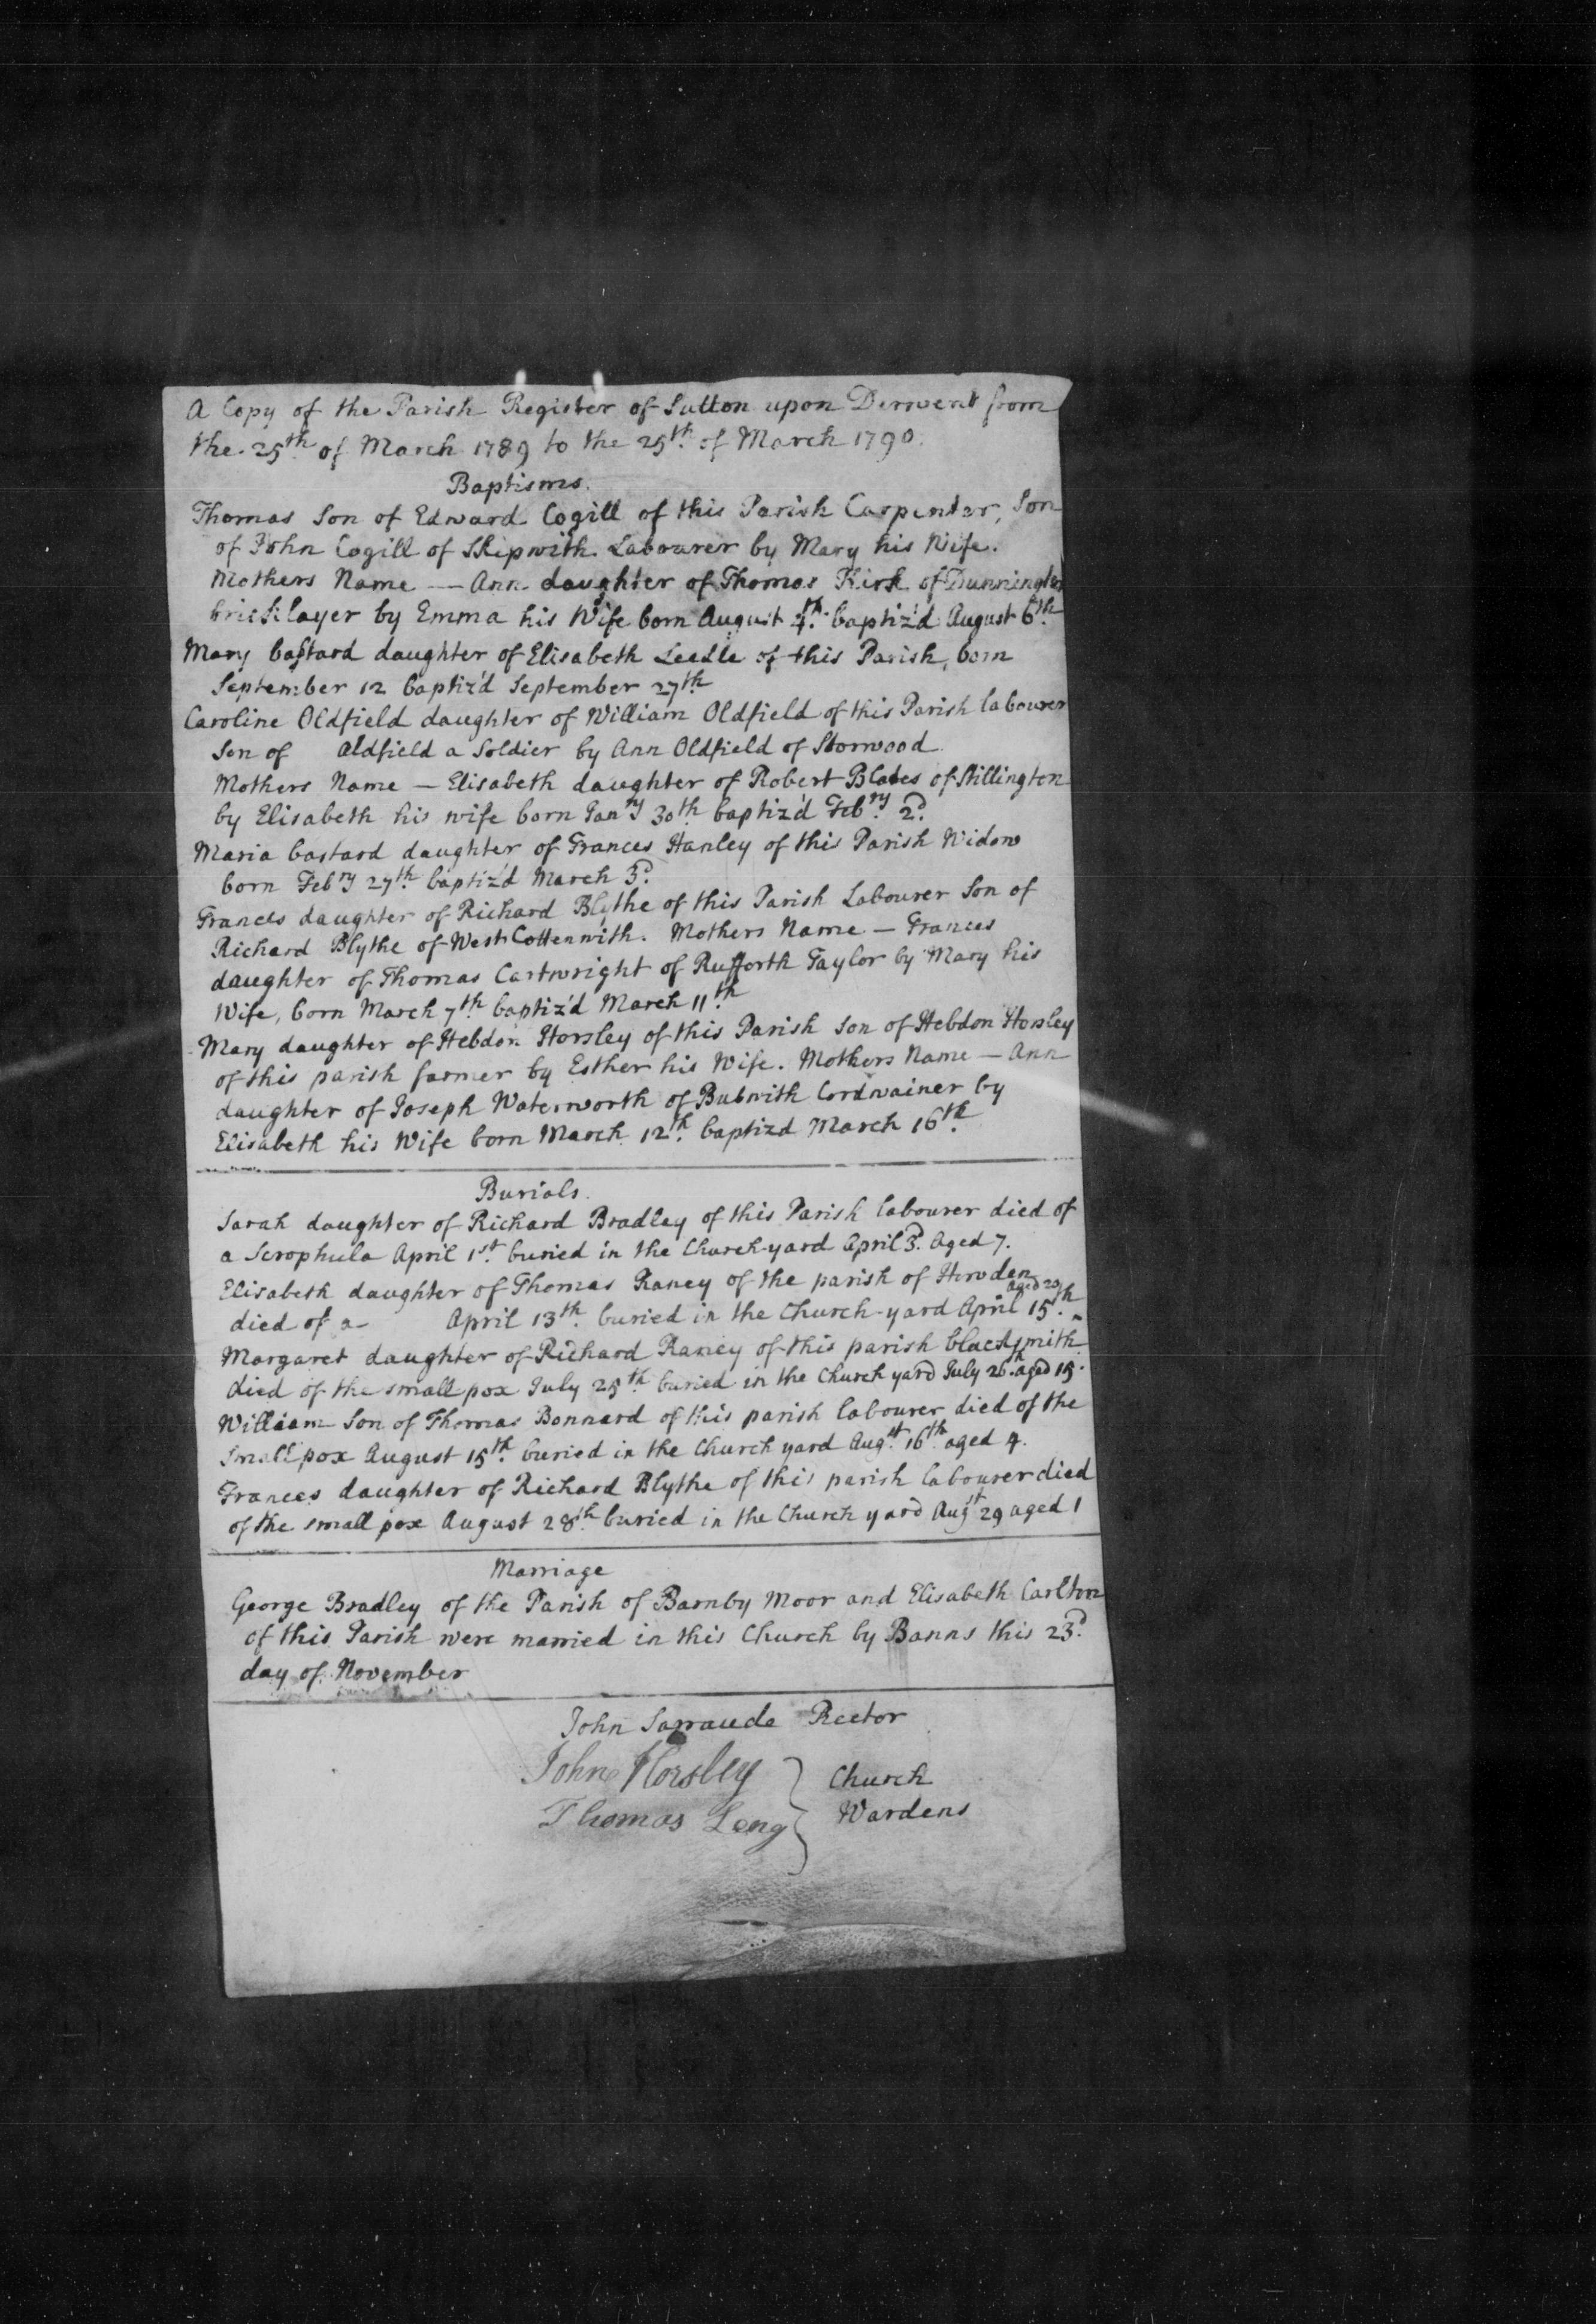 A Copy of the Parish Register of Sutton upon Derwent from
the 25th of March 1789 to the 25th of March 1790.
Baptisms.
Thomas Son of Edward Cogill of this Parish Carpenter, Son
of John Cogill of Skipwith Labourer by Mary his Wife.
Mothers Name — Ann daughter of Thomas Kirk of Dunnington
bricklayer by Emma his Wife born August 4th baptiz'd August 6th
Mary bastard daughter of Elisabeth Leedle of this Parish, born
September 12 baptiz'd September 27th
Caroline Oldfield daughter of William Oldfield of this Parish labourer
Son of Oldfield a Soldier by Ann Oldfield of Storwood
Mothers Name — Elisabeth daughter of Robert Blades of Stillington
by Elisabeth his wife born Janry 30th baptiz'd Febry 2d
Maria bastard daughter of Frances Hanley of this Parish Widow
born Febry 27th baptiz'd March 3d
Frances daughter of Richard Blythe of this Parish Labourer Son of
Richard Blythe of West Cottenwith. Mothers Name — Frances
daughter of Thomas Cartwright of Rufforth Taylor by Mary his
Wife, born March 7th baptiz'd March 11th
Mary daughter of Hebdon Horsley of this Parish Son of Hebdon Horsley
of this parish farmer by Esther his Wife. Mothers Name — Ann
daughter of Joseph Waterworth of Bubwith Cordwainer by
Elisabeth his Wife born March 12th baptizd March 16th
Burials.
Sarah daughter of Richard Bradley of this Parish labourer died of
a Scrophula April 1st buried in the Church-yard April 3d Aged 7.
Elisabeth daughter of Thomas Raney of the parish of Howden
died of a April 13th buried in the Church-yard April 15th aged 20
Margaret daughter of Richard Raney of this parish blacksmith
died of the small pox July 25th buried in the Church yard July 26th aged 15.
William Son of Thomas Bonnard of this parish labourer died of the
small pox August 15th buried in the Church yard Augst 16th aged 4.
Frances daughter of Richard Blythe of this parish labourer died
of the small pox August 28th buried in the Church yard Augst 29 aged 1
Marriage
George Bradley of the Parish of Barnby Moor and Elisabeth Carlton
of this Parish were married in this Church by Banns this 23d
day of November
John Sarraude Rector
John Horsley } Church
Thomas Leng } Wardens